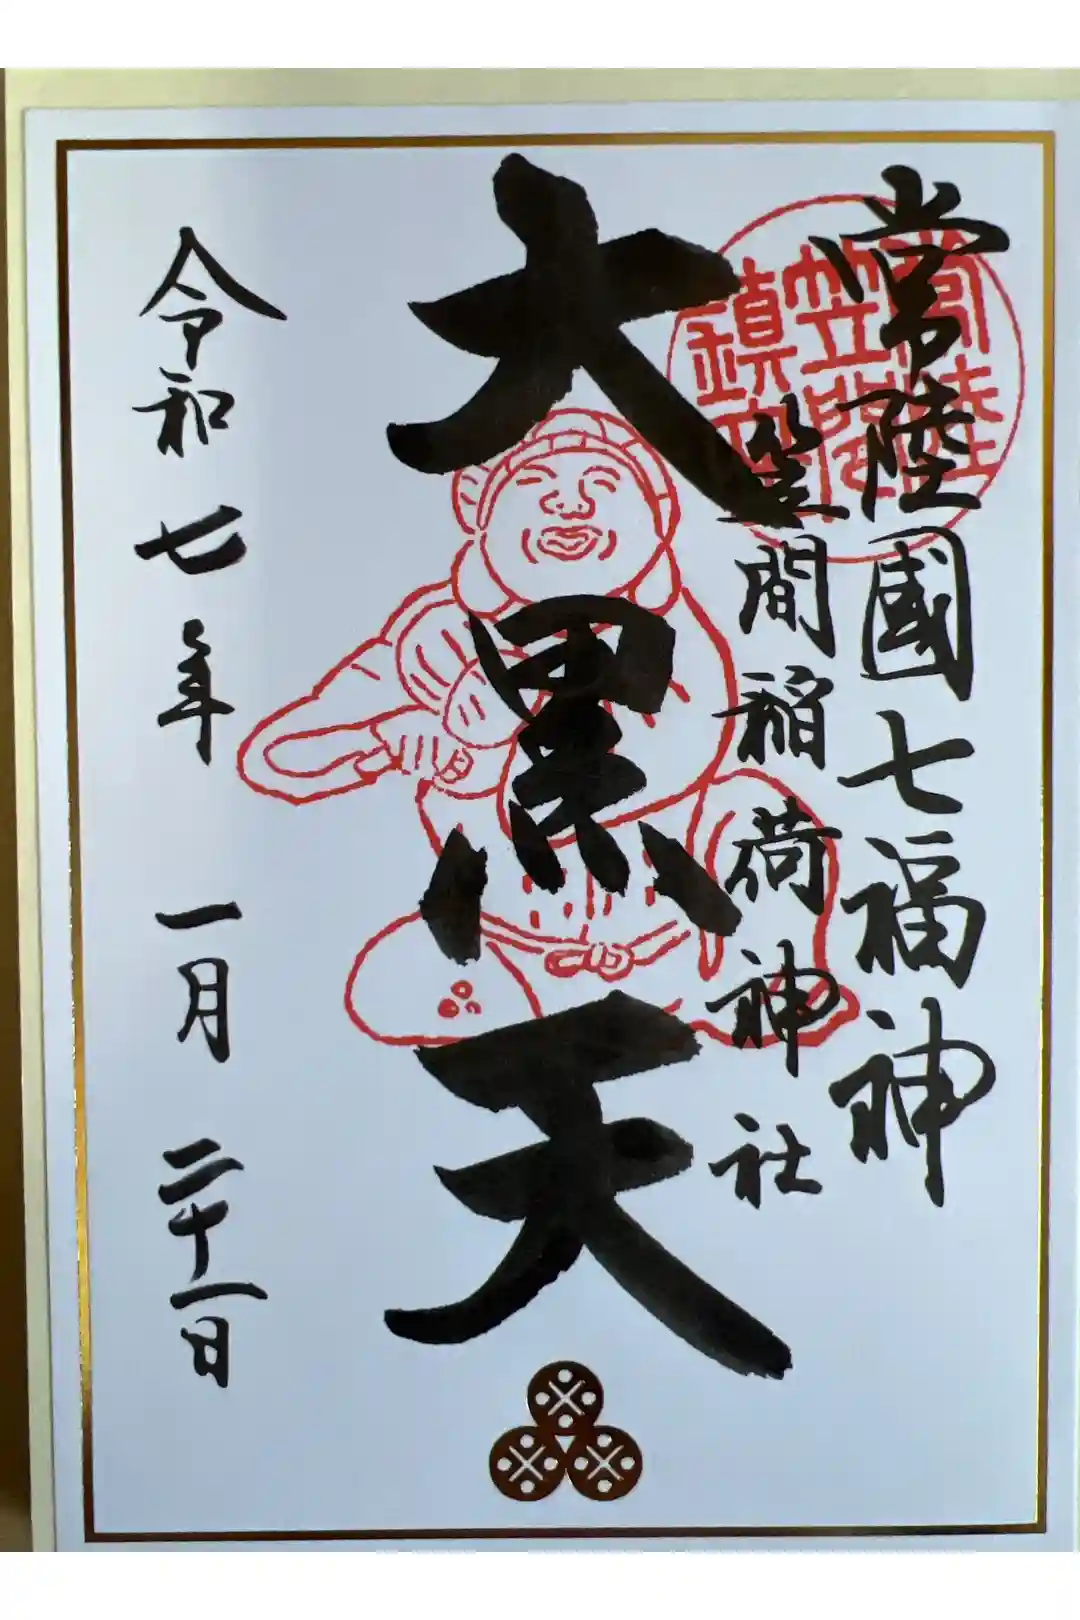 常陸國七福神
笠間稲荷神社
大黒天
令和七年一月二十一日
常陸
笠間
鎮